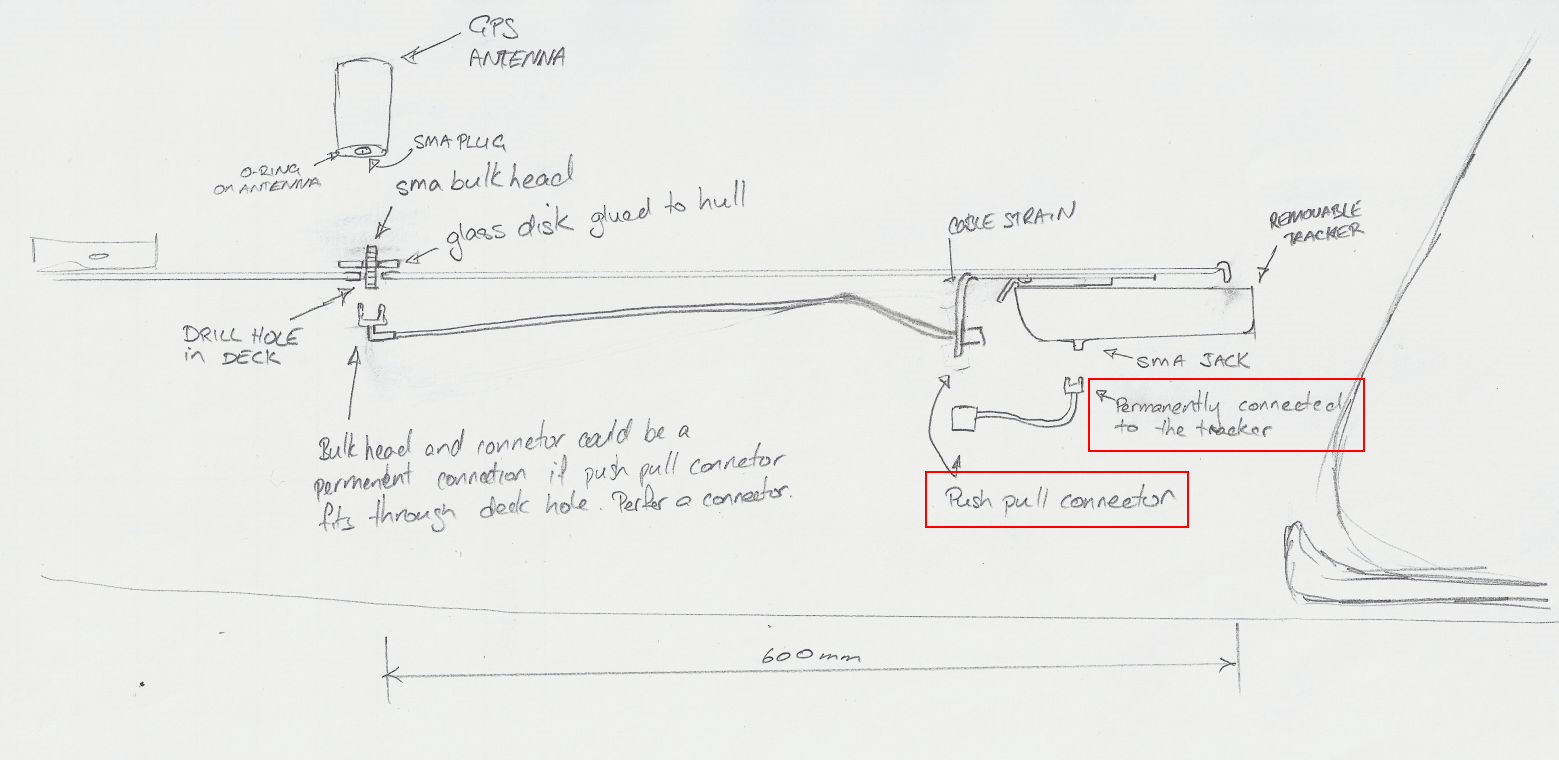 GPS
ANTENNA
SMA PLUG
O-RING
ON ANTENNA
sma bulkhead
glass disk glued to hull
CABLE STRAIN
REMOVABLE
TRACKER
DRILL HOLE
in DECK
SMA JACK
Permanently connected
to the tracker
Bulkhead and connetor could be a
permenent connection if push pull connetor
fits through deck hole. Perfer a connector.
Push pull connector
600mm